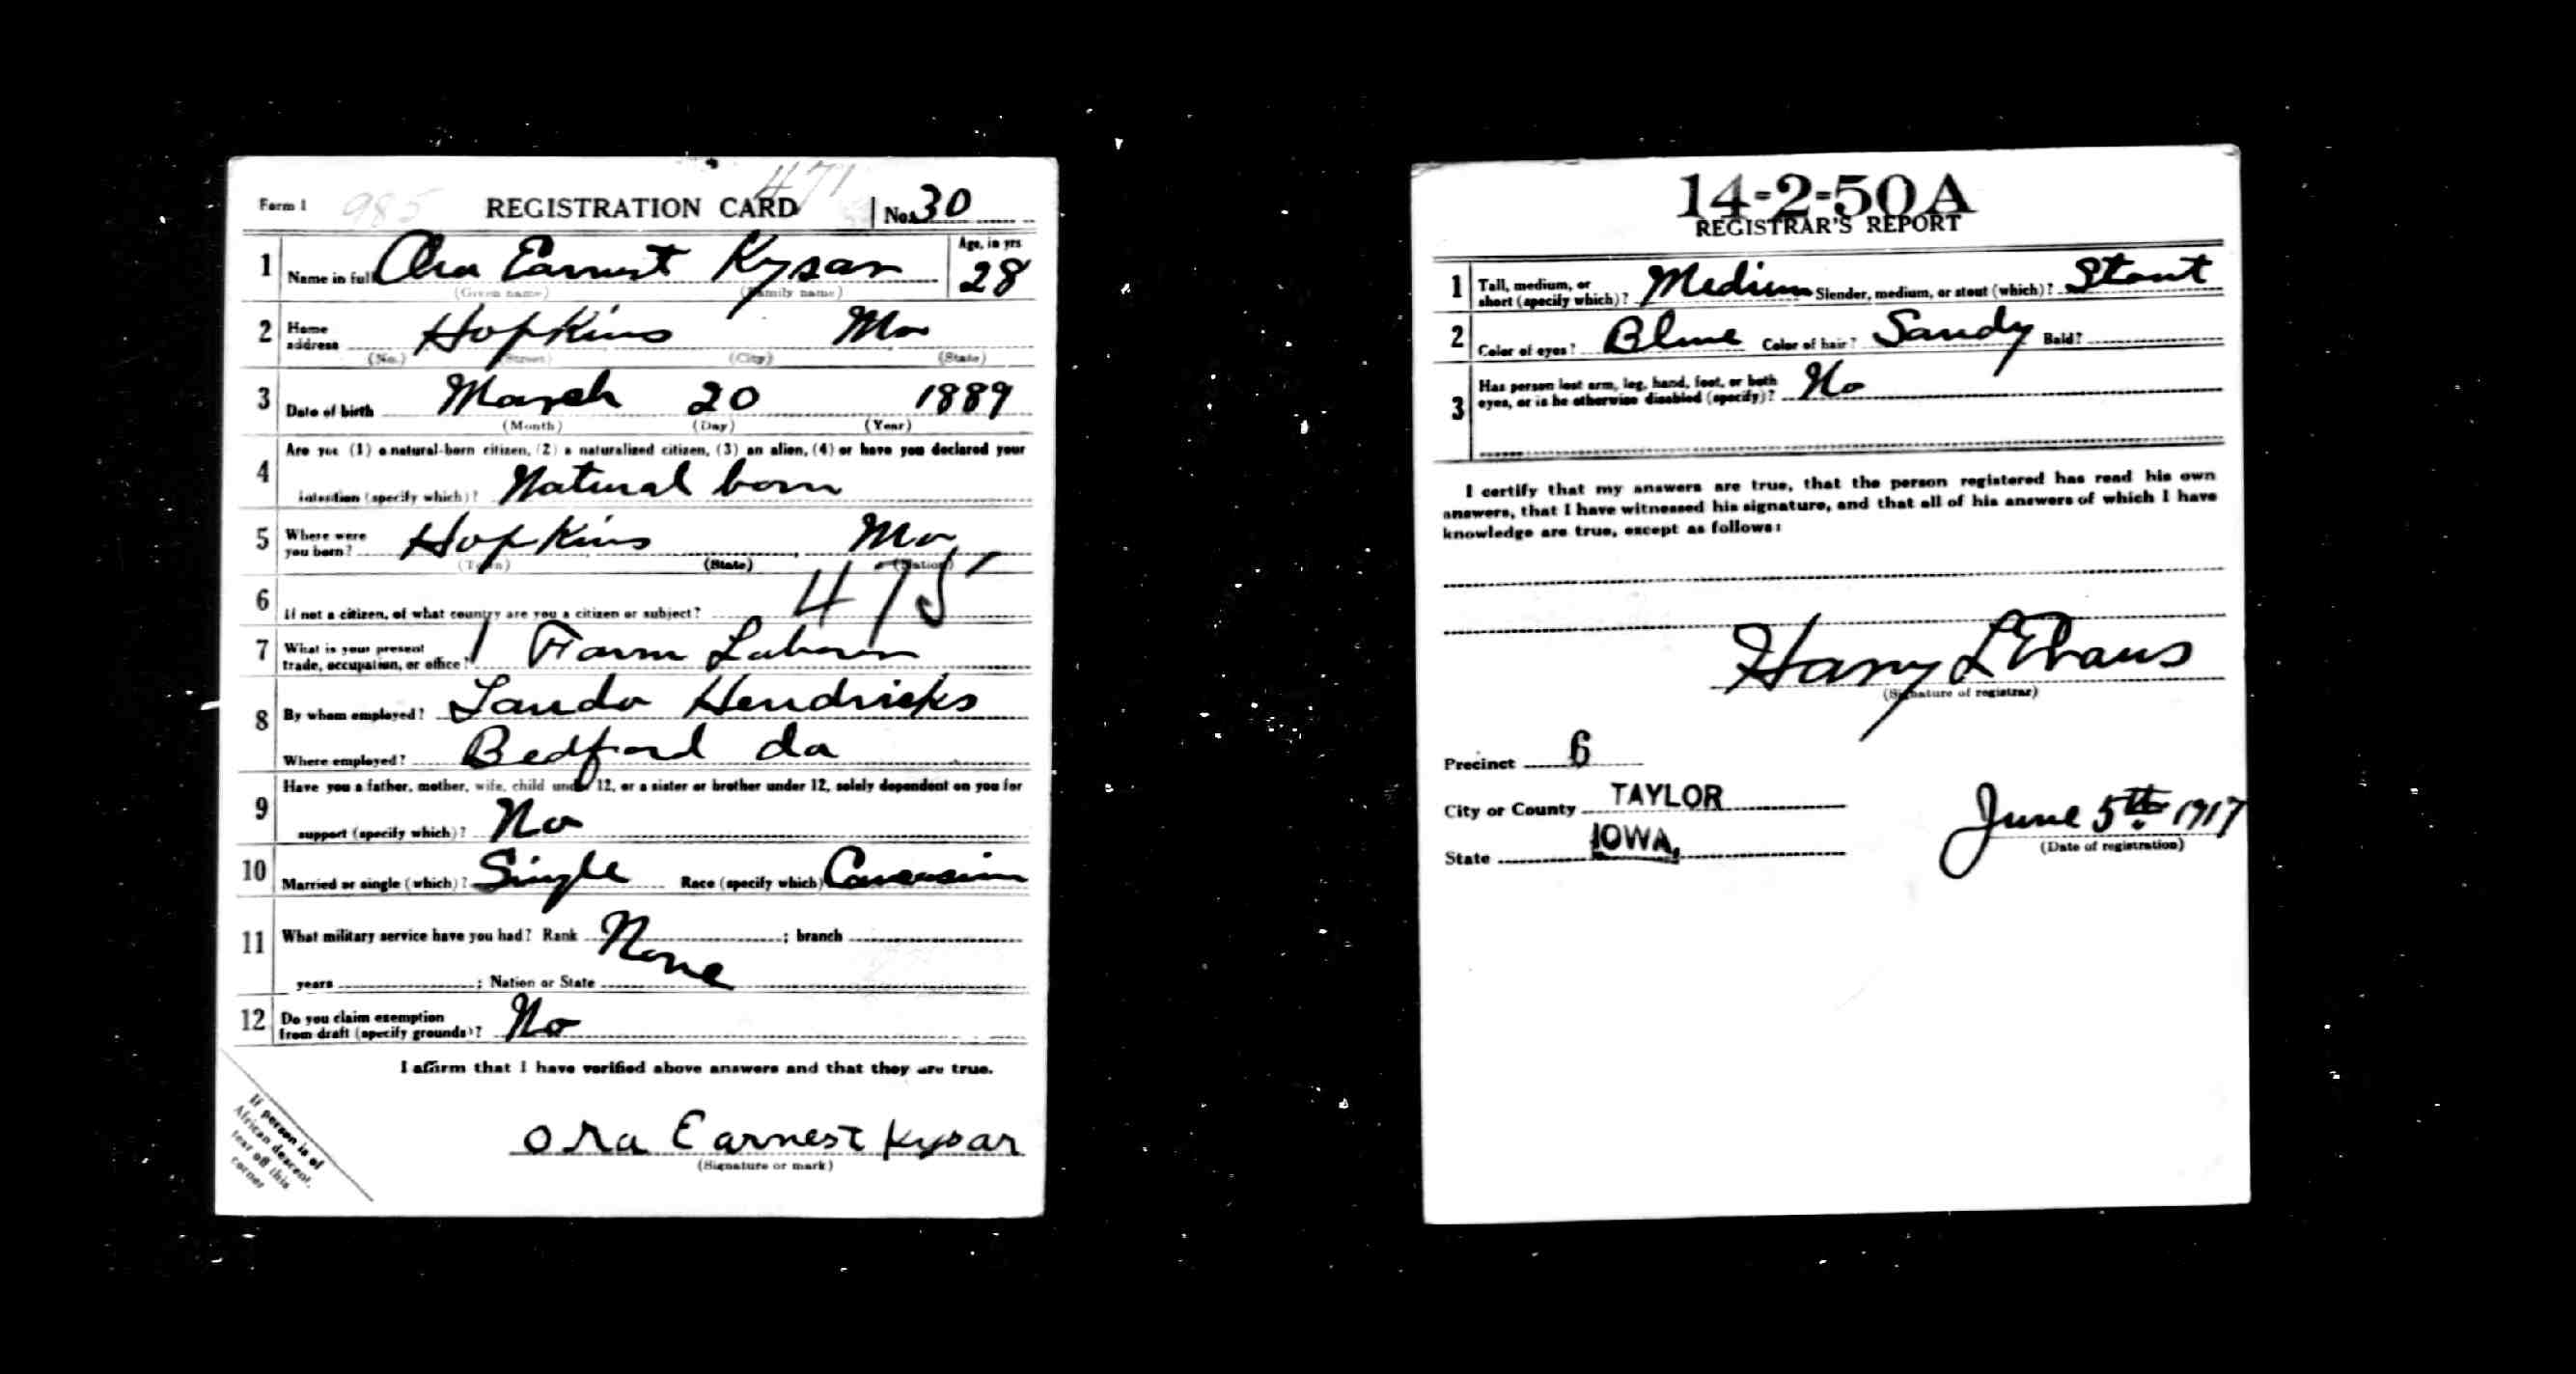 471
Form 1 985 REGISTRATION CARD No. 30
1 Name in full Ora Earnest Kysar Age, in yrs 28
(Given name) (Family name)
2 Home address Hopkins Mo
(No.) (Street) (City) (State)
3 Date of birth March 20 1889
(Month) (Day) (Year)
4 Are you (1) a natural-born citizen, (2) a naturalized citizen, (3) an alien, (4) or have you declared your
intention (specify which)? Natural born
5 Where were you born? Hopkins Mo
(Town) (State) (Nation)
6 If not a citizen, of what country are you a citizen or subject? 475
7 What is your present trade, occupation, or office? 1 Farm Laborer
8 By whom employed? Hendricks
Where employed? Bedford Ia
9 Have you a father, mother, wife, child under 12, or a sister or brother under 12, solely dependent on you for
support (specify which)? No
10 Married or single (which)? Single Race (specify which) Caucasian
11 What military service have you had? Rank None ; branch
years ; Nation or State
12 Do you claim exemption from draft (specify grounds)? No
I affirm that I have verified above answers and that they are true.
Ora Earnest Kysar
(Signature or mark)
If person is of
African descent,
tear off this
corner
14-2-50 A
REGISTRAR'S REPORT
1 Tall, medium, or short (specify which)? Medium Slender, medium, or stout (which)? Stout
2 Color of eyes? Blue Color of hair? Sandy Bald?
3 Has person lost arm, leg, hand, foot, or both eyes, or is he otherwise disabled (specify)? No
I certify that my answers are true, that the person registered has read his own
answers, that I have witnessed his signature, and that all of his answers of which I have
knowledge are true, except as follows:
Harry L Evans
(Signature of registrar)
Precinct 6
City or County TAYLOR
State IOWA.
June 5th 1917
(Date of registration)